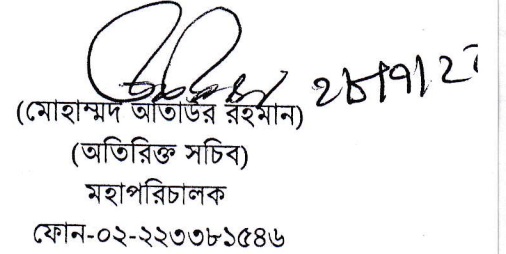 (মোহাম্মদ আতাউর রহমান)
(অতিরিক্ত সচিব)
মহাপরিচালক
ফোন-০২-২২৩৩৮১৫৪৬